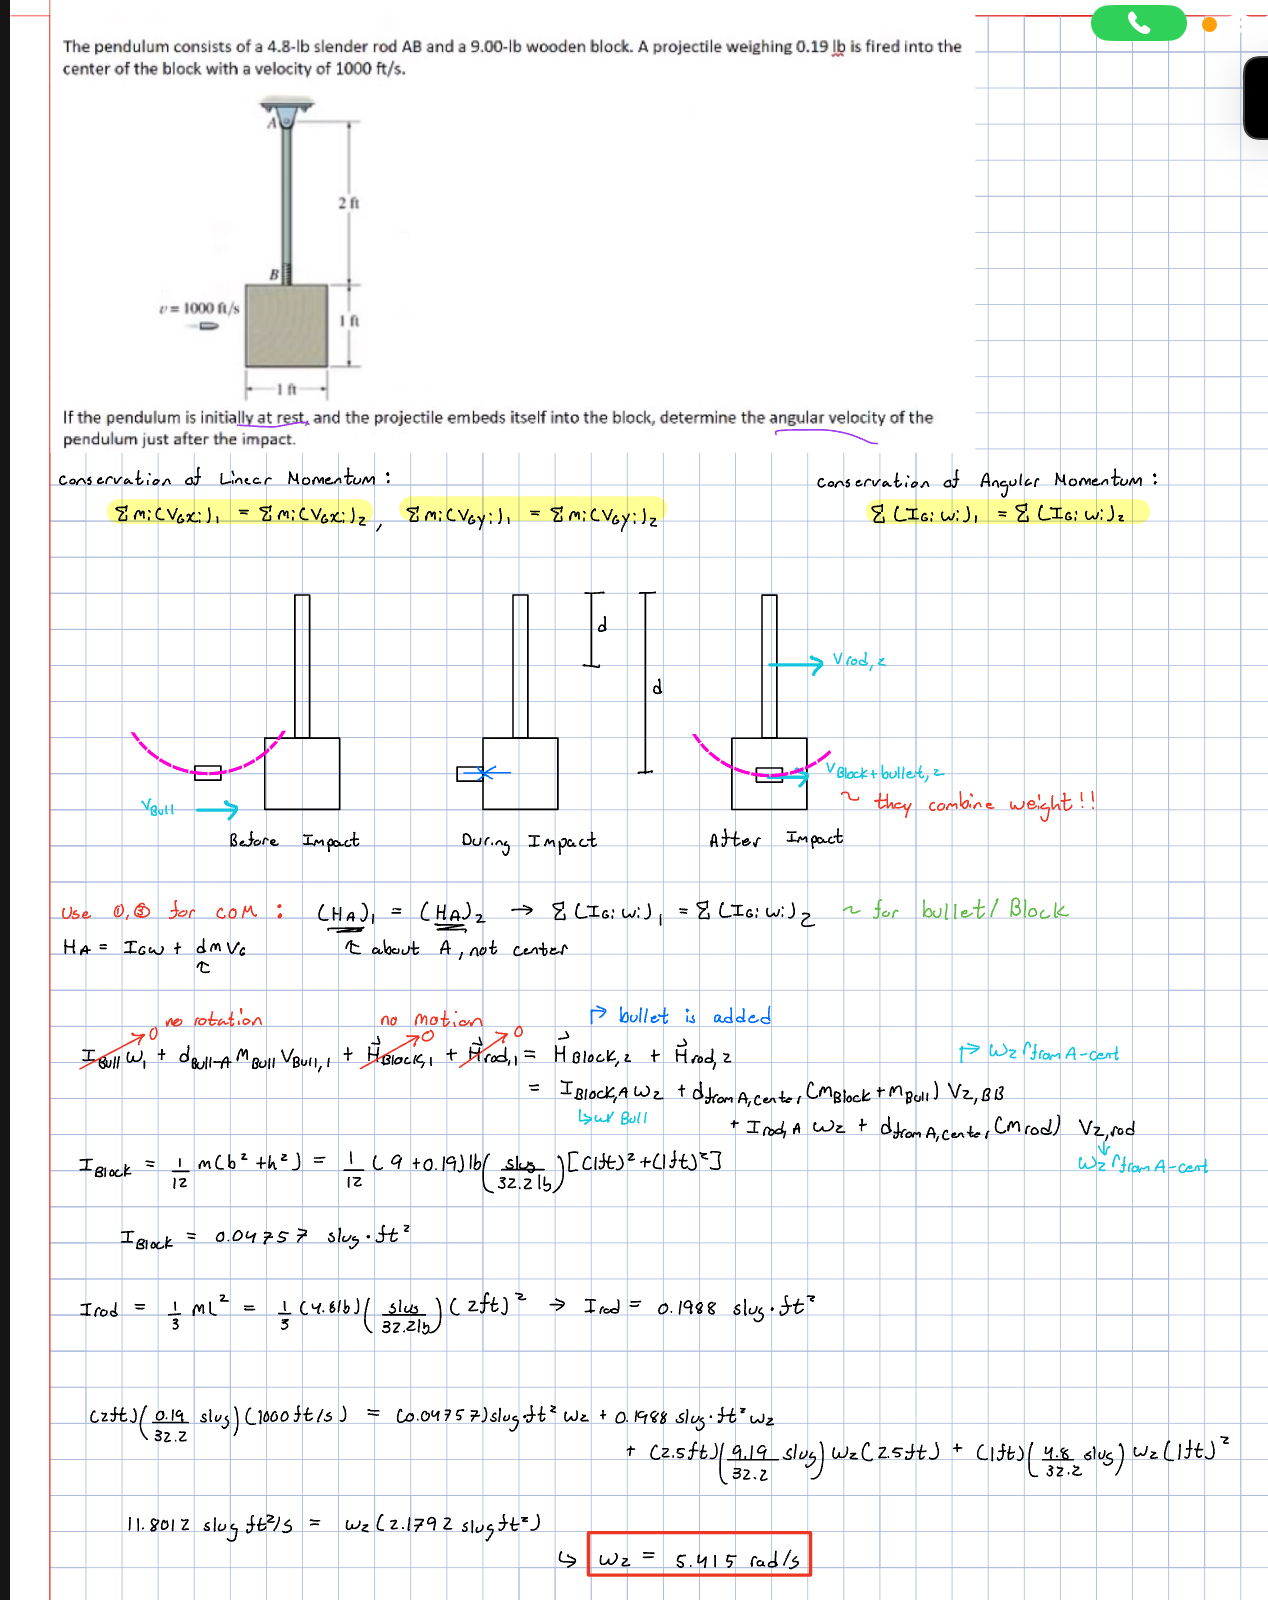 The pendulum consists of a 4.8-lb slender rod AB and a 9.00-lb wooden block. A projectile weighing 0.19 lb is fired into the
center of the block with a velocity of 1000 ft/s.
A
2 ft
B
v = 1000 ft/s
1 ft
1 ft
If the pendulum is initially at rest, and the projectile embeds itself into the block, determine the angular velocity of the
pendulum just after the impact.
Conservation of Linear Momentum :
Conservation of Angular Momentum :
Σmi(VGxi)₁ = Σmi(VGxi)₂ , Σmi(VGyi)₁ = Σmi(VGyi)₂
Σ(IGi wi)₁ = Σ(IGi wi)₂
d
d
Vrod,2
VBlock+bullet,2
~ they combine weight!!
VBull
Before Impact
During Impact
After Impact
Use ①,③ for COM : (HA)₁ = (HA)₂ → Σ(IGi wi)₁ = Σ(IGi wi)₂ ~ for bullet/Block
HA = IGW + dmVG
↑ about A, not center
no rotation
no motion
↱ bullet is added
0
0
0
IBull W₁ + dBull-A MBull VBull,1 + HBlock,1 + Hrod,1 = HBlock,2 + Hrod,2
↱ W2 rfrom A-cent
= IBlock,A W2 + dfrom A,center (MBlock + MBull) V2,BB
↳ w/ Bull
+ Irod,A W2 + dfrom A,center (Mrod) V2,rod
W2 rfrom A-cent
IBlock = 1/12 m(b² + h²) = 1/12 (9 + 0.19)lb(slug/32.2 lb)[(1ft)² + (1ft)²]
IBlock = 0.04757 slug·ft²
Irod = 1/3 mL² = 1/3 (4.8lb)(slug/32.2lb)(2ft)² → Irod = 0.1988 slug·ft²
(2ft)(0.19/32.2 slug)(1000ft/s) = (0.04757)slug ft² W2 + 0.1988 slug·ft² W2
+ (2.5ft)(9.19/32.2 slug) W2(2.5ft) + (1ft)(4.8/32.2 slug) W2(1ft)²
11.8012 slug ft²/s = W2(2.1792 slug ft²)
↳ W2 = 5.415 rad/s